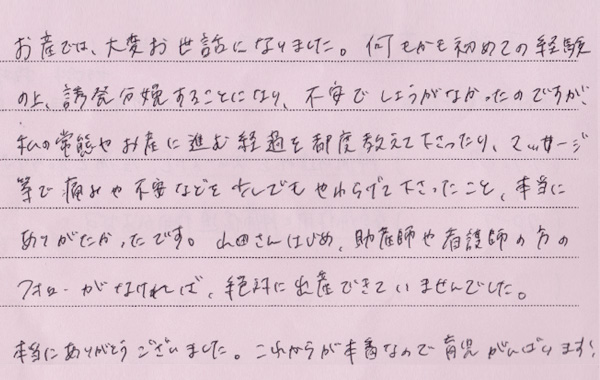 お産では、大変お世話になりました。何もかも初めての経験
の上、誘発分娩することになり、不安でしょうがなかったのですが、
私の常態やお産に進む経過を都度教えて下さったり、マッサージ
等で痛みや不安などを少しでもやわらげて下さったこと、本当に
ありがたかったです。山田さんはじめ、助産師や看護師の方の
フォローがなければ、絶対に出産できていませんでした。
本当にありがとうございました。これからが本番なので育児がんばります!